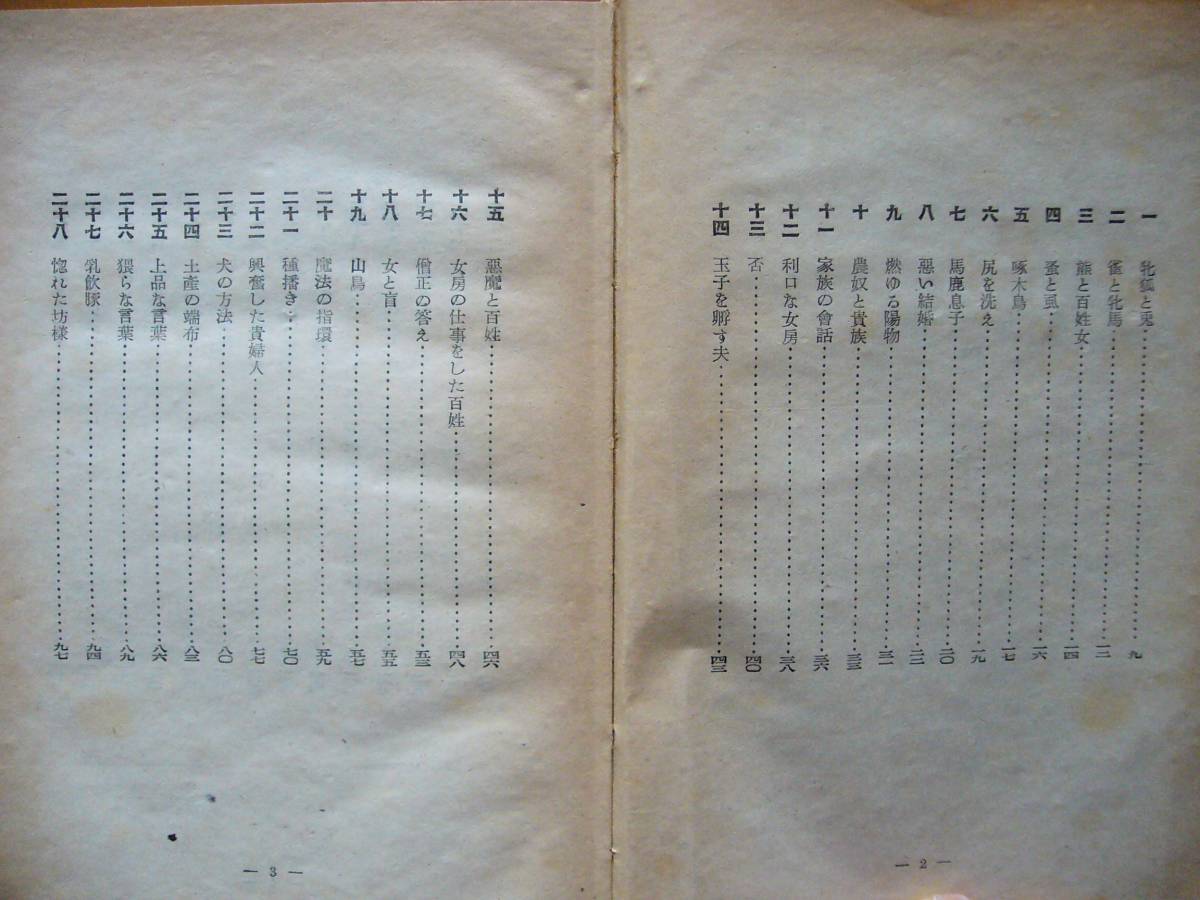 一 牝狐と兎 九
二 雀と牝馬 一二
三 熊と百姓女 一四
四 蚤と虱 一六
五 啄木鳥 一七
六 尻を洗え 一九
七 馬鹿息子 二〇
八 惡い結婚 二二
九 燃ゆる陽物 三一
十 農奴と貴族 三三
十一 家族の會話 三六
十二 利口な女房 三八
十三 否 四〇
十四 玉子を孵す夫 四三
— 2 —
十五 惡魔と百姓 四六
十六 女房の仕事をした百姓 四八
十七 僧正の答え 五三
十八 女と盲 五五
十九 山鳥 五七
二十 魔法の指環 五九
二十一 種播き 七〇
二十二 興奮した貴婦人 七七
二十三 犬の方法 八〇
二十四 土產の端布 八三
二十五 上品な言葉 八六
二十六 猥らな言葉 八九
二十七 乳飲豚 九四
二十八 惚れた坊樣 九七
— 3 —